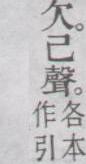 欠。己聲。
各本
作引